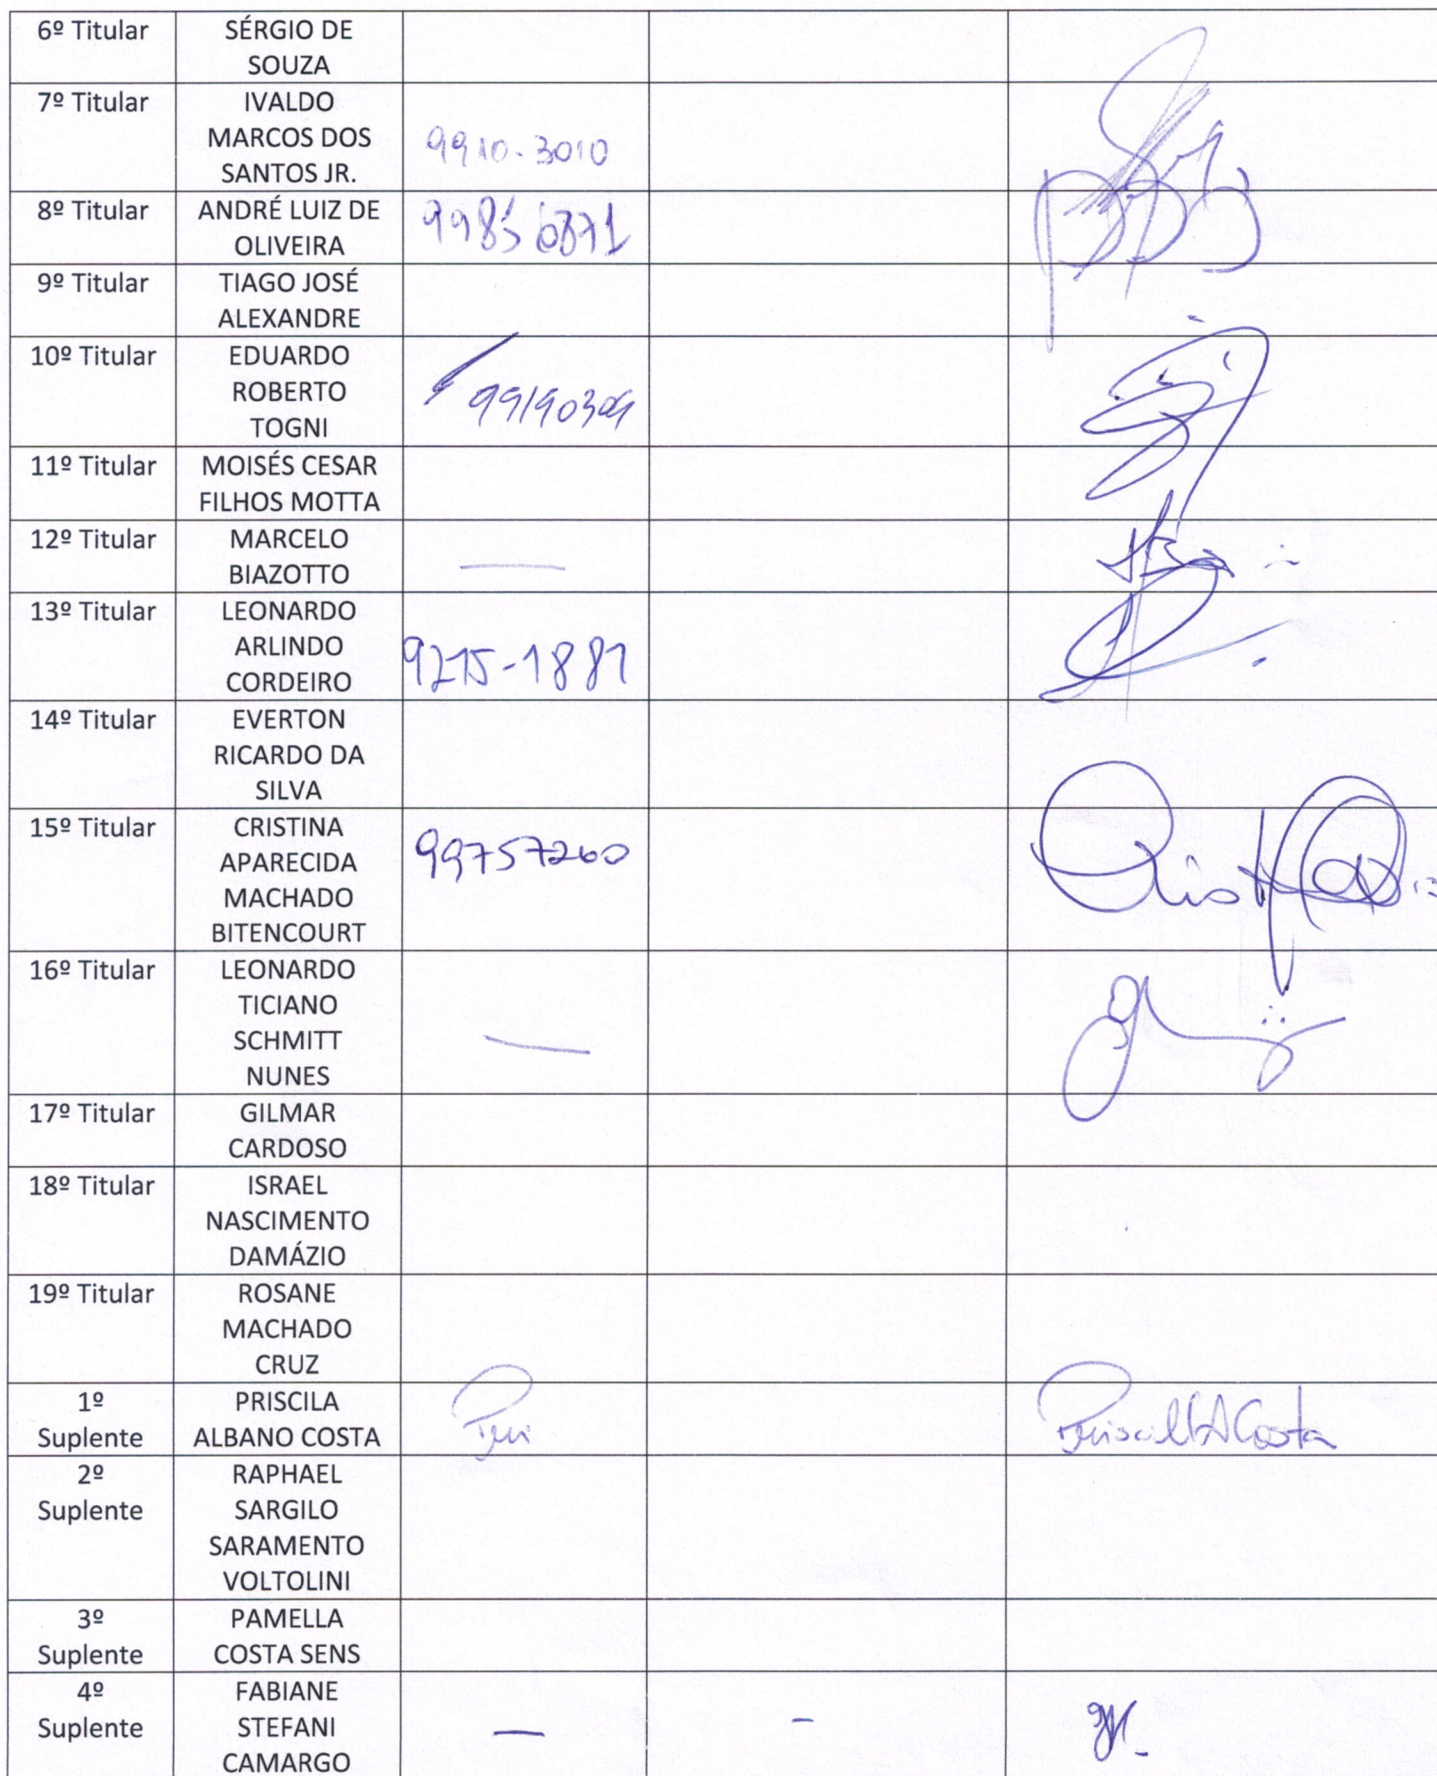 6º Titular SÉRGIO DE
SOUZA
7º Titular IVALDO
MARCOS DOS
SANTOS JR.
9910-3010
8º Titular ANDRÉ LUIZ DE
OLIVEIRA
9º Titular TIAGO JOSÉ
ALEXANDRE
10º Titular EDUARDO
ROBERTO
TOGNI
11º Titular MOISÉS CESAR
FILHOS MOTTA
12º Titular MARCELO
BIAZOTTO
13º Titular LEONARDO
ARLINDO
CORDEIRO
9215-1881
14º Titular EVERTON
RICARDO DA
SILVA
15º Titular CRISTINA
APARECIDA
MACHADO
BITENCOURT
99757260
16º Titular LEONARDO
TICIANO
SCHMITT
NUNES
17º Titular GILMAR
CARDOSO
18º Titular ISRAEL
NASCIMENTO
DAMÁZIO
19º Titular ROSANE
MACHADO
CRUZ
1º PRISCILA
Suplente ALBANO COSTA
Priscilla A Costa
2º RAPHAEL
Suplente SARGILO
SARAMENTO
VOLTOLINI
3º PAMELLA
Suplente COSTA SENS
4º FABIANE
Suplente STEFANI
CAMARGO